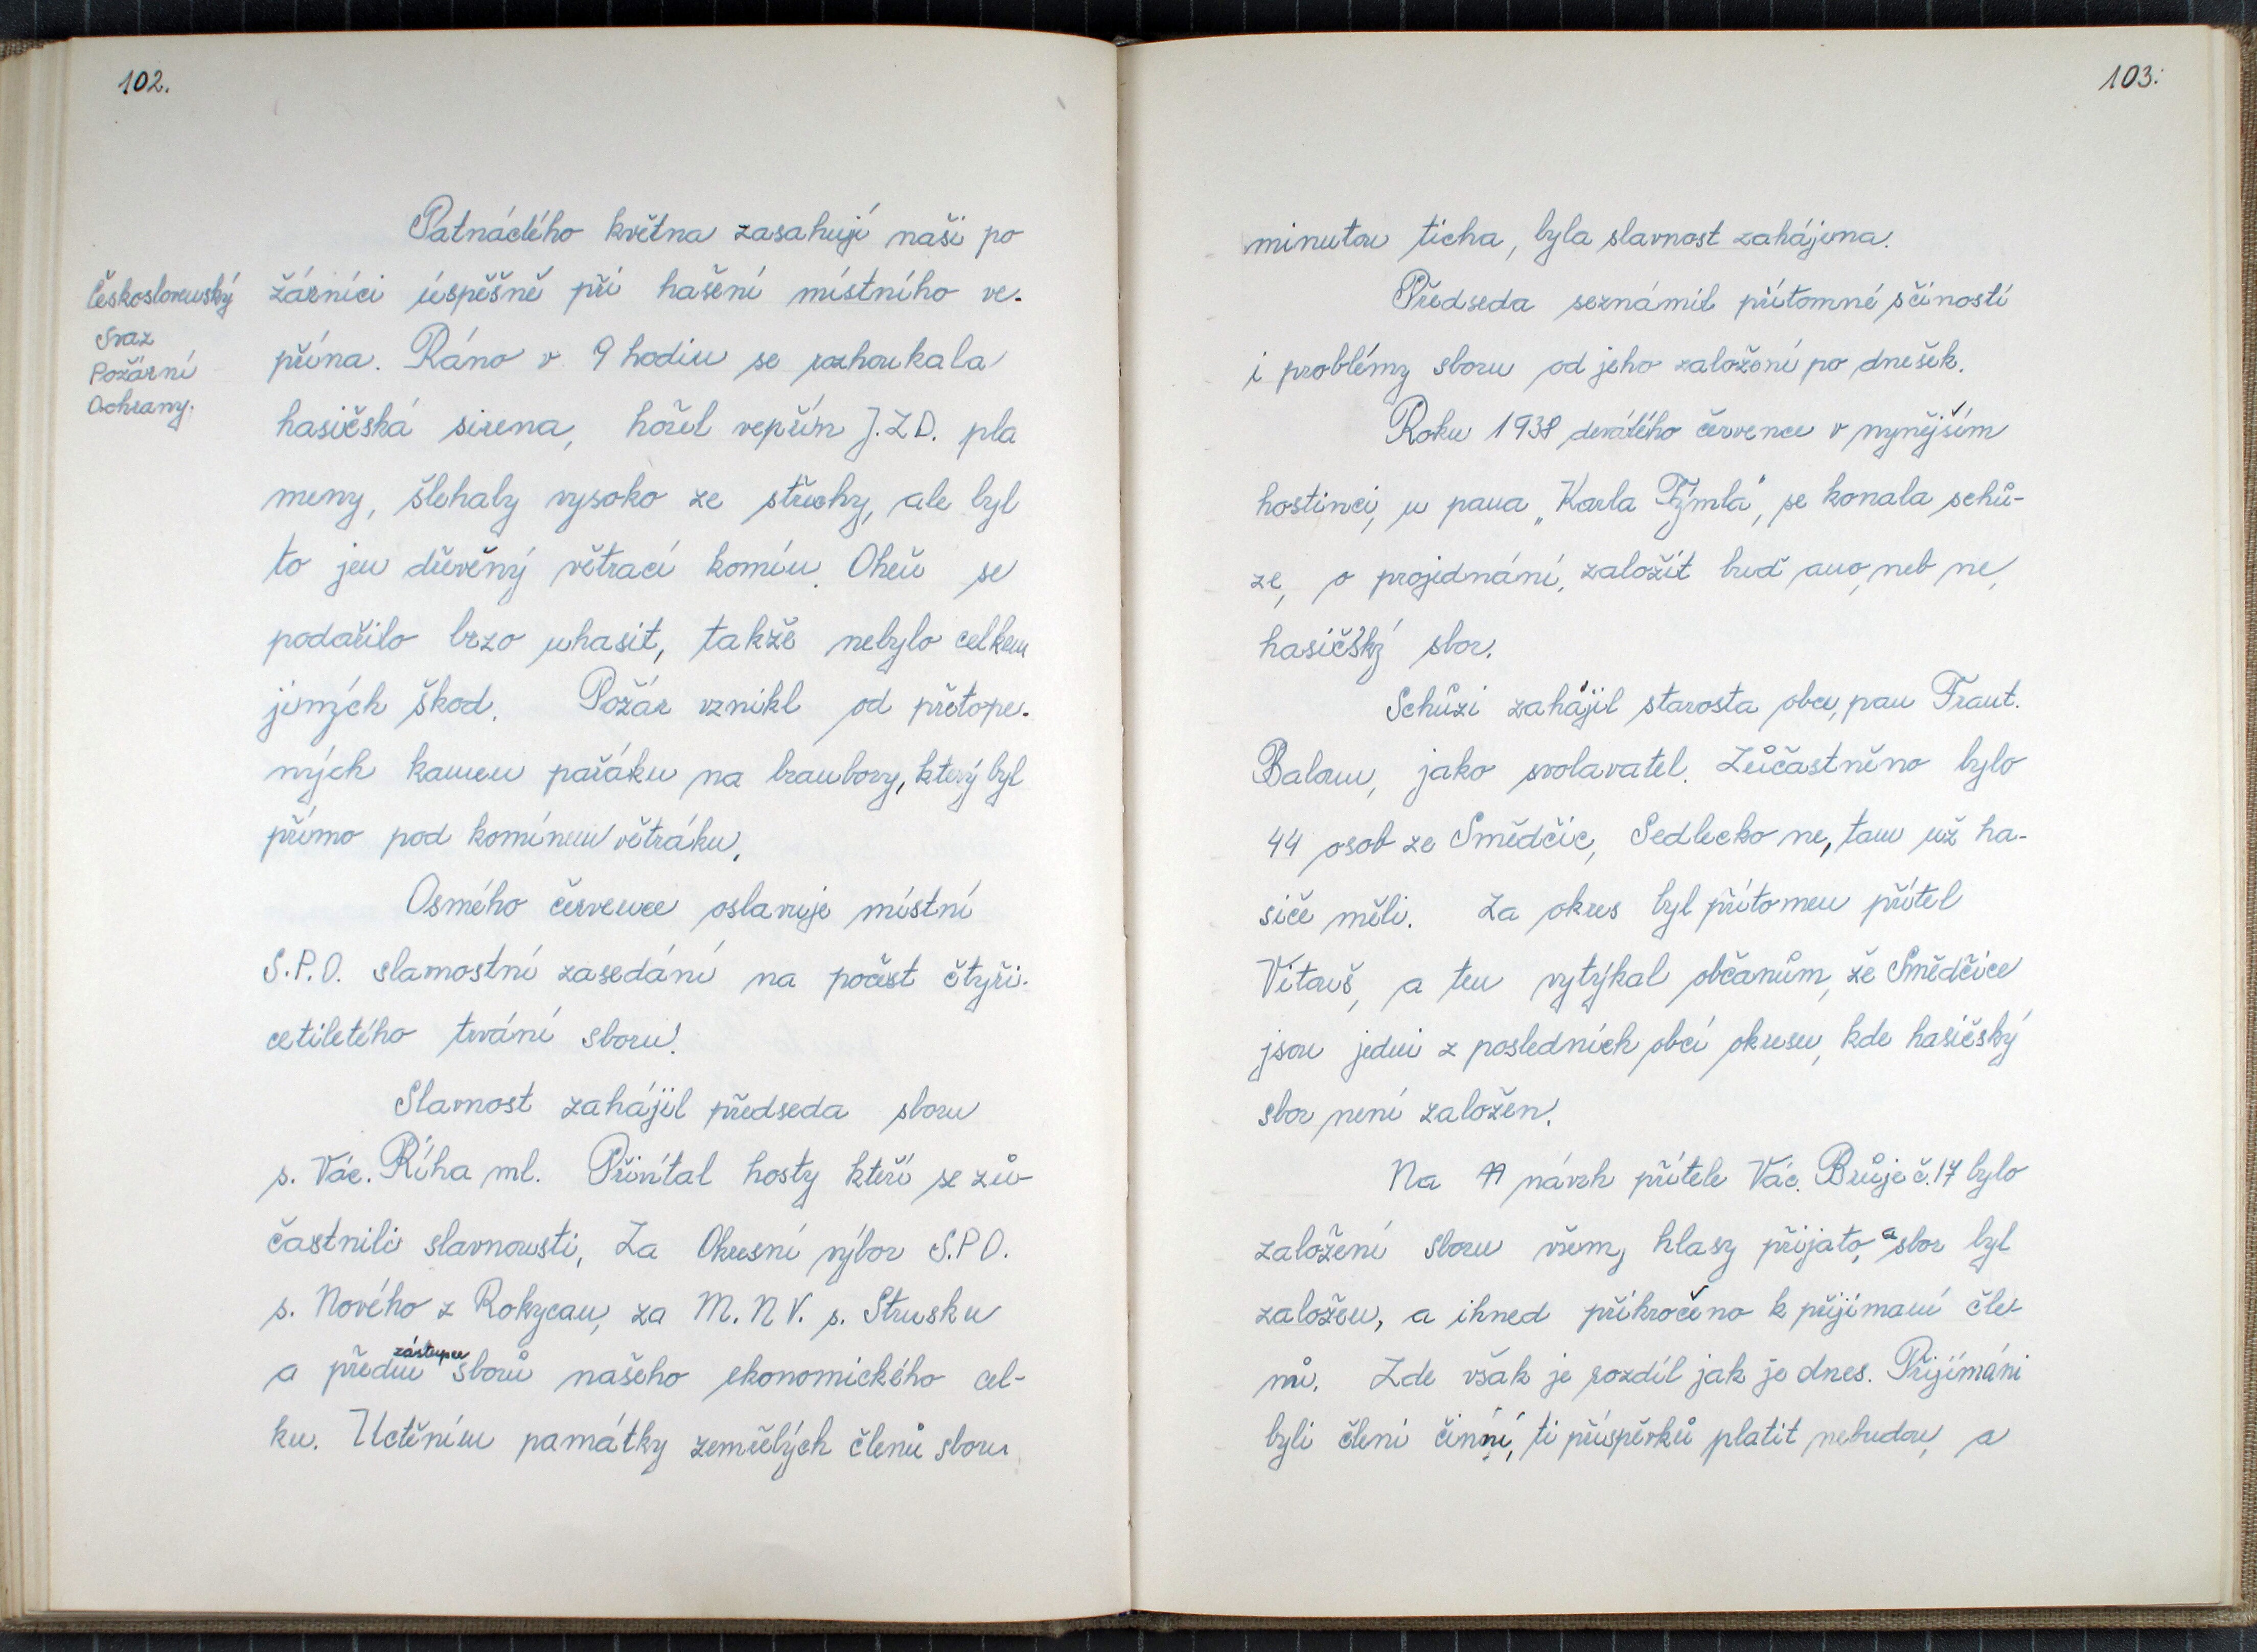 102.
Československý
Svaz
Požární
Ochrany.
Patnáctého května zasahují naši po
žárníci úspěšně při hašení místního ve-
přína. Ráno v 9 hodin se rozhoukala
hasičská sirena, hořel vepřín J.Z.D. pla
meny, šlehaly vysoko ze střechy, ale byl
to jen dřevěný větrací komín. Oheň se
podařilo brzo uhasit, takže nebylo celkem
jiných škod. Požár vznikl od přetope-
ných kamen pařáku na brambory, který byl
přímo pod komínem větráku.
Osmého července oslavuje místní
S.P.O. slavnostní zasedání na počest čtyři-
cetiletého trvání sboru.
Slavnost zahájil předseda sboru
s. Vác. Říha ml. Přivítal hosty kteří se zú-
častnili slavnousti, Za Okresní výbor S.P.O.
s. Nového z Rokycan, za M.N.V. s. Strusku
a předem zástupce sborů našeho ekonomického cel-
ku. Uctěním památky zemřelých členů sboru
103.
minutou ticha, byla slavnost zahájena.
Předseda seznámil přítomné s činosti
i problémy sboru od jeho založení po dnešek.
Roku 1938 devátého července v nynějším
hostinci, u pana „Karla Týmla", se konala schů-
ze, o projednání, založit buď ano, neb ne,
hasičský sbor.
Schůzi zahájil starosta obce, pan Frant.
Baloun, jako svolavatel. Zúčastněno bylo
44 osob ze Smědčic, Sedlecko ne, tam už ha-
siče měli. Za okres byl přítomen přítel
Vítouš, a ten vytýkal občanům, že Smědčice
jsou jedni z posledních obcí okresu, kde hasičský
sbor není založen.
Na návrh přítele Vác. Brůje č. 17 bylo
založení sboru všemy hlasy přijato, a sbor byl
založen, a ihned přikročeno k přijímaní čle-
nů. Zde však je rozdíl jak je dnes. Přijímáni
byli členi činní, ti příspěvků platit nebudou, a